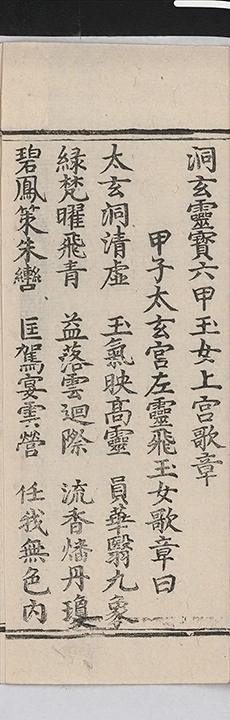 洞玄靈寳六甲玉女上宫歌章
甲子太玄宫左靈飛玉女歌章曰
太玄洞清虛　玉氣映高靈　員華翳九象
緑梵曜飛青　益落雲迴際　流香燔丹瓊
碧鳳策朱轡　匡駕宴雲營　任我無色内